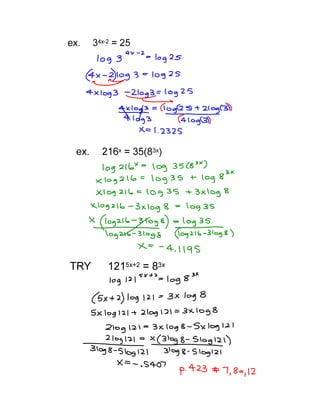 ex. 3^(4x-2) = 25
log 3^(4x-2) = log 25
(4x-2)log 3 = log 25
4xlog3 - 2log3 = log 25
4xlog3 = (log25 + 2log(3))
4log3 (4log(3))
x = 1.2325
ex. 216^x = 35(8^(3x))
log 216^x = log 35(8^(3x))
xlog 216 = log 35 + log 8^(3x)
xlog 216 = log 35 + 3xlog 8
xlog216 - 3xlog 8 = log 35
x(log216 - 3log 8) = log 35
log216-3log8 (log216-3log8)
x = -4.1195
TRY 121^(5x+2) = 8^(3x)
log 121^(5x+2) = log 8^(3x)
(5x+2)log 121 = 3x log 8
5x log 121 + 2log 121 = 3x log 8
2log 121 = 3x log 8 - 5x log 121
2log 121 = x(3log 8 - 5log 121)
3log8-5log121 3log8-5log121
x = -.5407
p 423 # 7, 8a, 12